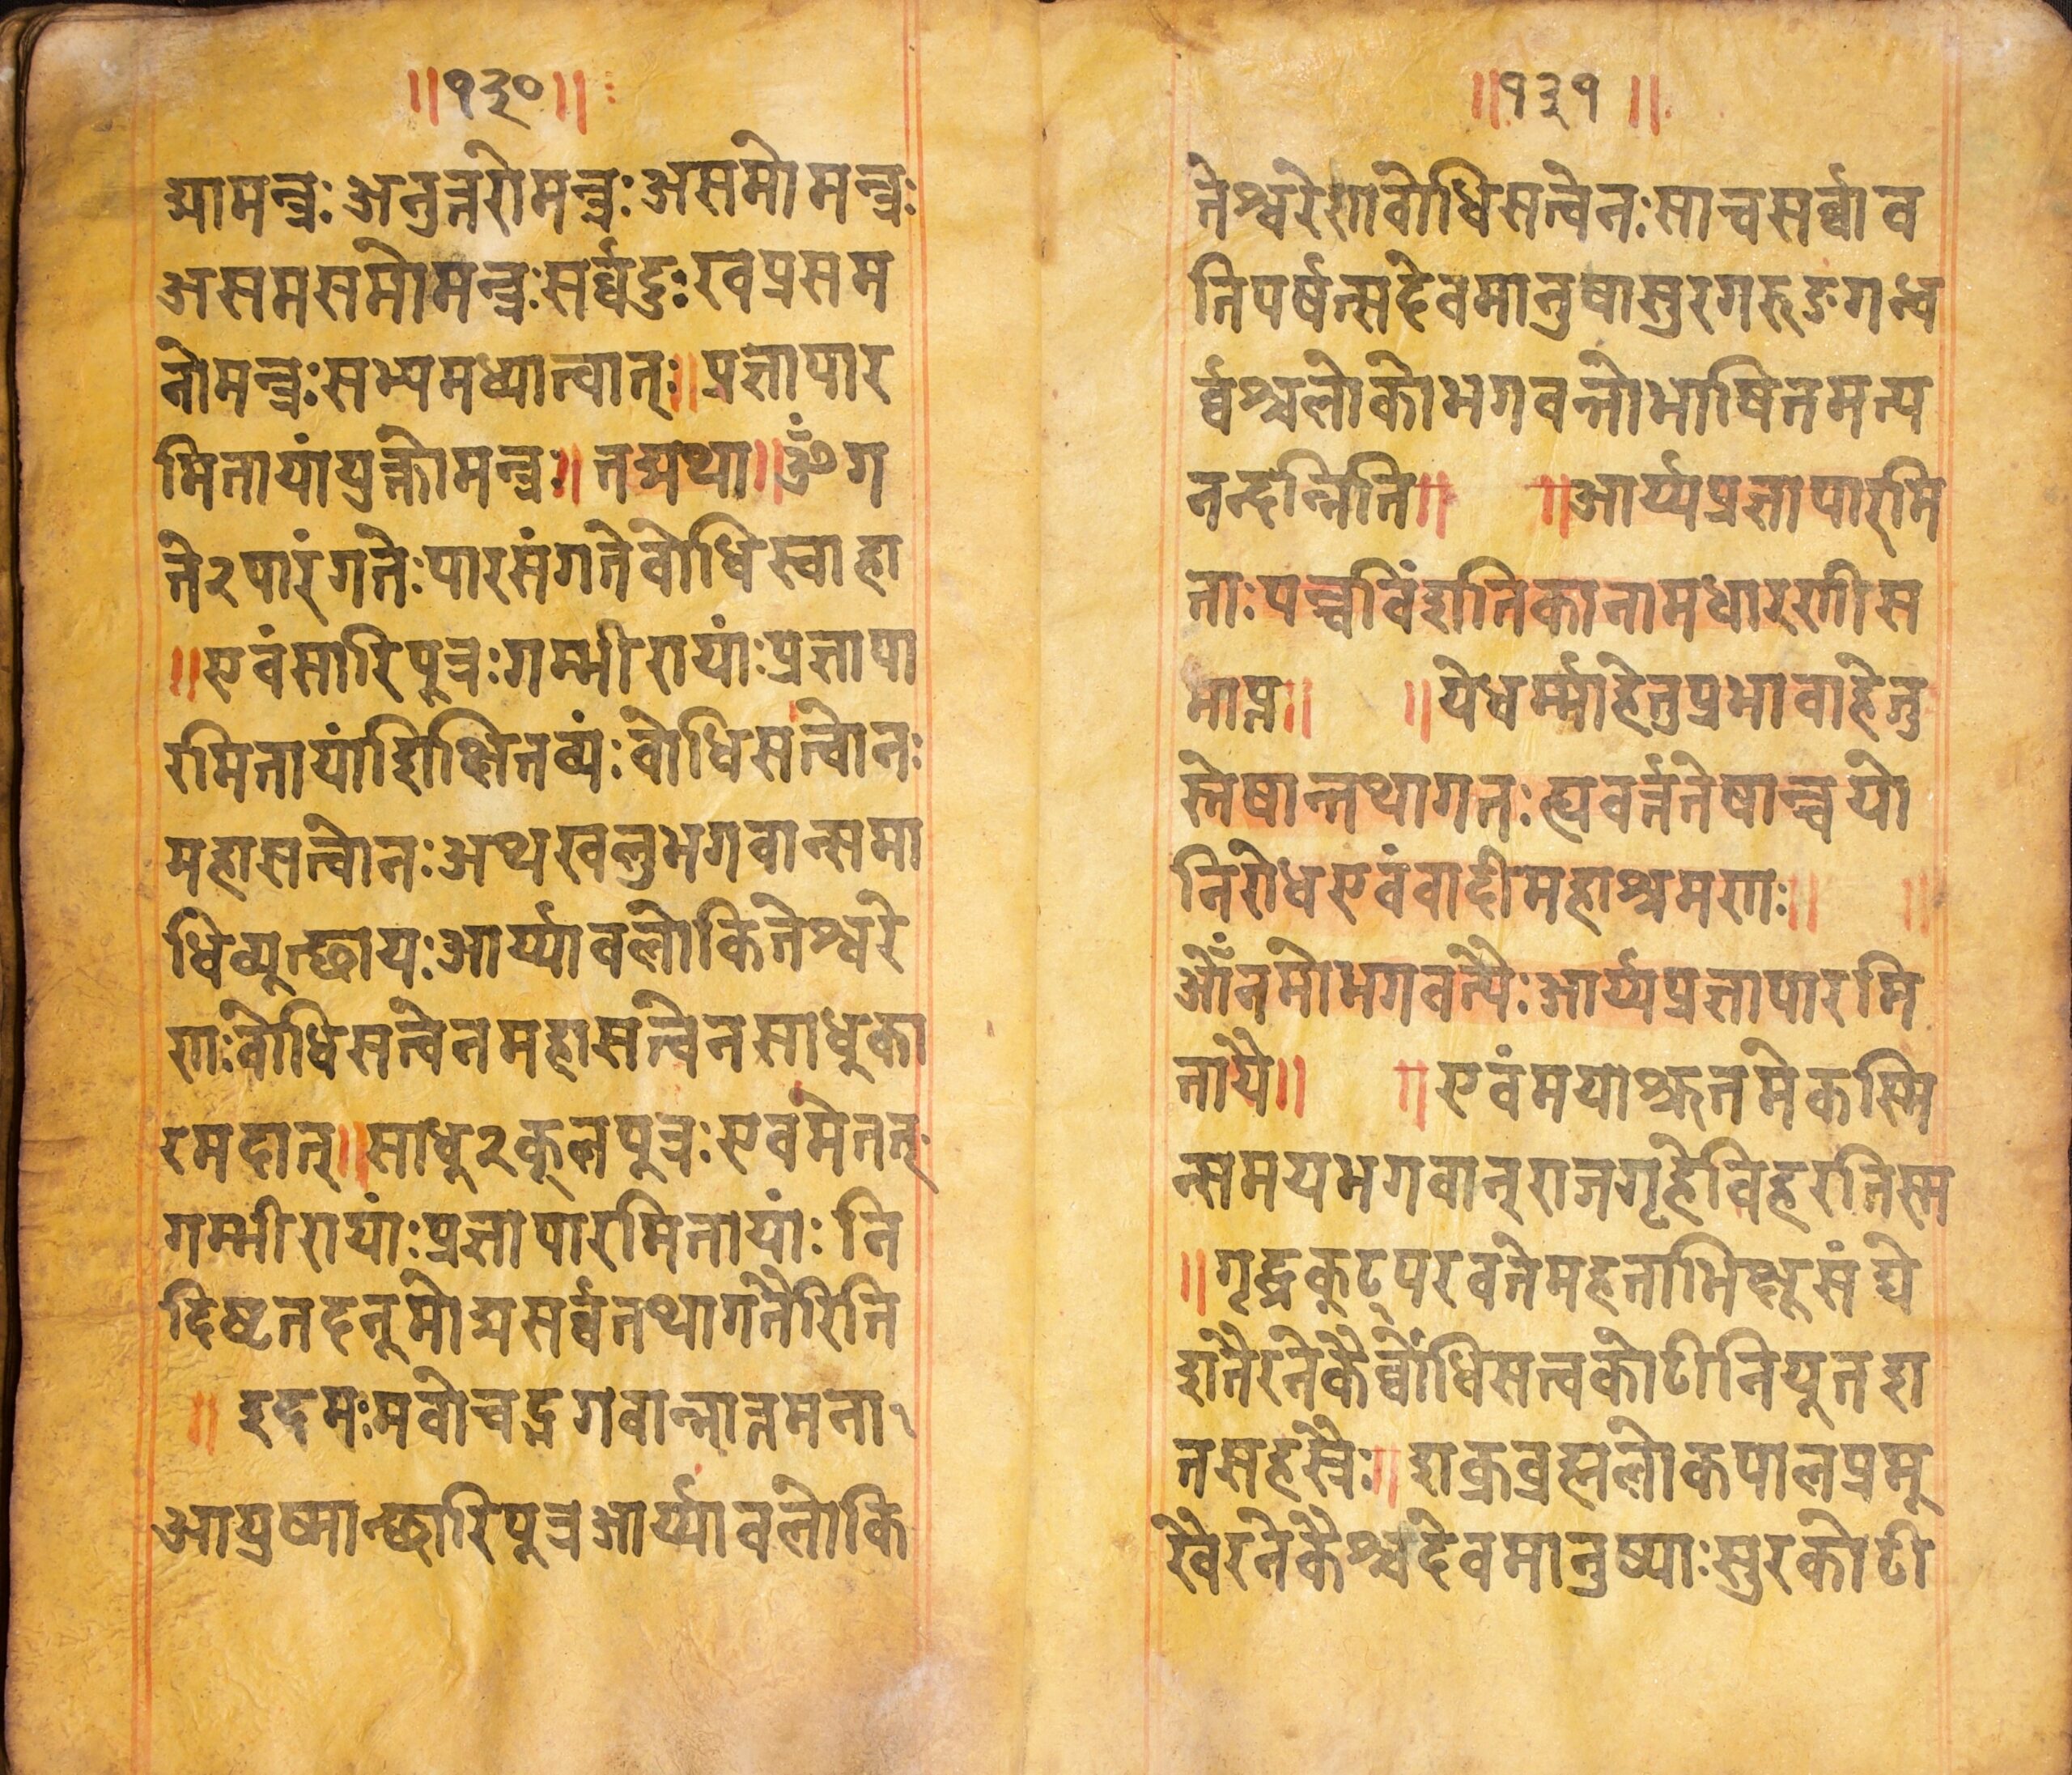 ॥१३०॥
द्यामन्त्रः अनुत्तरोमन्त्रः असमोमन्त्रः
असमसमोमन्त्रः सर्व्वदुःखप्रसम
नोमन्त्रः सभ्यमध्यात्त्वात्ः॥ प्रज्ञापार
मितायांयुक्तोमन्त्रः॥ तद्यथा॥ ॐ ग
ते२पारंगतेः पारसंगते वोधि स्वाहा
॥एवंसारिपुत्रः गम्भीरायांः प्रज्ञापा
रमितायांशिक्षितव्यंः वोधिसत्त्वोनः
महासत्त्वोनः अथखलुभगवान्समा
धिव्युत्छायः आर्य्यावलोकितेश्वरे
णः वोधिसत्त्वेनमहासत्त्वेनसाधुका
रमदात्॥साधु२कुलपुत्रः एवमेतत्
गम्भीरायांः प्रज्ञापारमितायांः नि
दिष्टतदनुमोद्यसर्व्वतथागतैरिति
॥ इदमःमवोचद्भगवान्नात्तमना
आयुष्मान्छारिपुत्रआर्य्यावलोकि
॥१३१॥
तेश्वरेणवोधिसत्त्वेनः साचसर्व्वाव
तिपर्षत्सदेवमानुषासुरगरुडगन्ध
र्व्वश्चलोकोभगवन्तोभाषितमत्य
नन्दन्निति॥ ॥आर्य्यप्रज्ञापारमि
ताः पञ्चविंशतिकानामधारणीस
माप्त॥ ॥येधर्म्माहेतुप्रभावाहेतु
स्तेषान्तथागतः ह्यवर्त्ततेषाञ्चयो
निरोधएवंवादीमहाश्रमणः॥ ॥
ओँनमोभगवत्यैः आर्य्यप्रज्ञापारमि
तायै॥ ॥एवंमयाश्रुतमेकस्मि
न्समयभगवान्राजगृहेविहरतिस्म
॥गृद्ध्रकुट्परवतेमहताभिक्षुसंघे
शतैरनेकैर्व्वोधिसत्त्वकोटीनियुतश
तसहस्रैः॥ शक्रब्रह्मलोकपालप्रमु
खैरनेकैश्चदेवमानुष्याः सुरकोटी